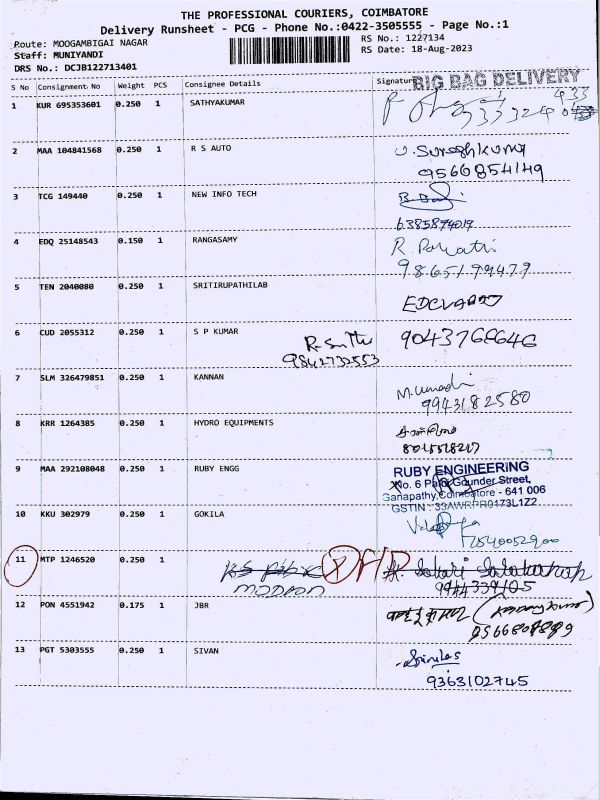 THE PROFESSIONAL COURIERS, COIMBATORE
Delivery Runsheet - PCG - Phone No.:0422-3505555 - Page No.:1
Route: MOOGAMBIGAI NAGAR
RS No.: 1227134
Staff: MUNIYANDI
RS Date: 18-Aug-2023
DRS No.: DCJB122713401
S No Consignment No Weight PCS Consignee Details Signature
BIG BAG DELIVERY
1 KUR 695353601 0.250 1 SATHYAKUMAR
2 MAA 104841568 0.250 1 R S AUTO
U. Sureshkumar
9566854149
3 TCG 149440 0.250 1 NEW INFO TECH
6385894019
4 EDQ 25148543 0.150 1 RANGASAMY
R. Parvathi
9865199479
5 TEN 2040080 0.250 1 SRITIRUPATHILAB
6 CUD 2055312 0.250 1 S P KUMAR
9842732553
9043768646
7 SLM 326479851 0.250 1 KANNAN
9943182580
8 KRR 1264385 0.250 1 HYDRO EQUIPMENTS
9 MAA 292108048 0.250 1 RUBY ENGG
RUBY ENGINEERING
No. 6 Gounder Street,
Ganapathy, Coimbatore - 641 006
GSTIN : 33AWRPR0173L1Z2
10 KKU 302979 0.250 1 GOKILA
11 MTP 1246520 0.250 1
12 PON 4551942 0.175 1 JBR
13 PGT 5303555 0.250 1 SIVAN
9363102745